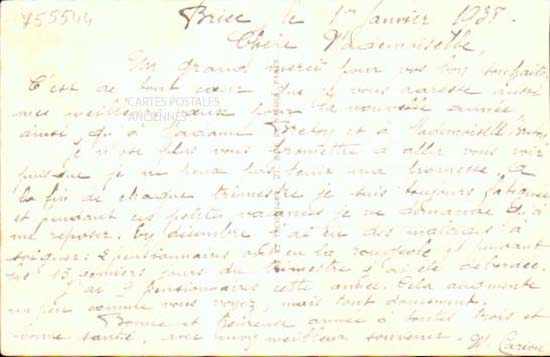 455544
Briec le 1er Janvier 1938.
Chère Mademoiselle,
Un grand merci pour vos bons souhaits.
C'est de tout cœur que je vous adresse aussi
mes meilleurs vœux pour la nouvelle année
ainsi qu'à Madame Breton et à Mademoiselle
CARTES POSTALES
ANCIENNES
Je n'ose plus vous promettre d'aller vous voir
puisque je ne peux pas tenir ma promesse. A
la fin de chaque trimestre je suis toujours fatiguée
et pendant ces petites vacances je ne demande qu'à
me reposer. En décembre j'ai eu des malades à
soigner: 2 pensionnaires ont eu la rougeole et durant
les 15 derniers jours du trimestre j'ai été débordée.
J'ai 9 pensionnaires cette année. Cela augmente
un peu comme vous voyez, mais tout doucement.
Bonne et heureuse année à toutes trois et
bonne santé, avec mon meilleur souvenir. M. Cariou